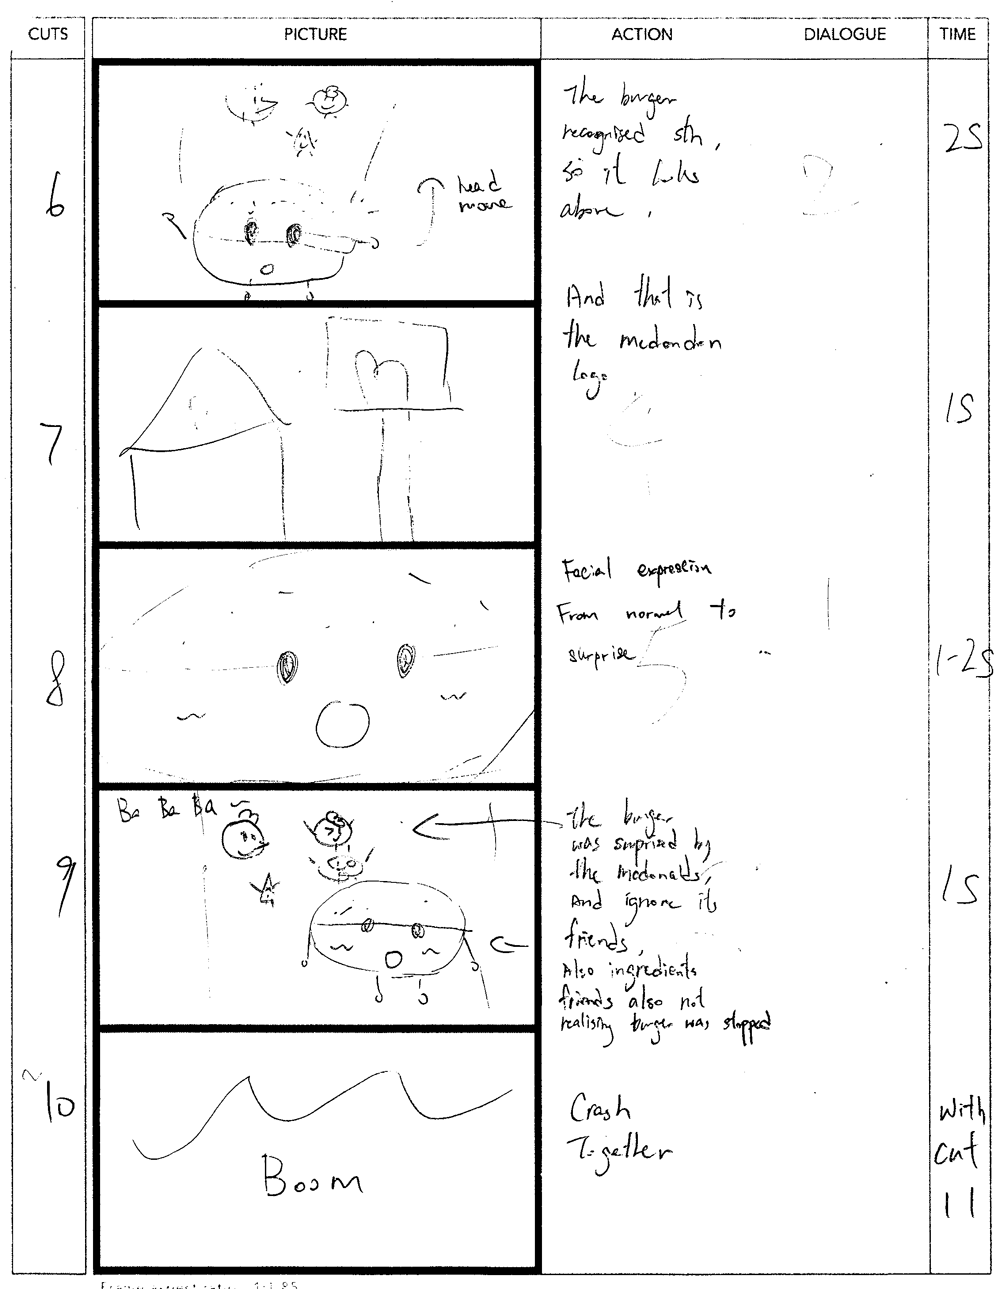 CUTS PICTURE ACTION DIALOGUE TIME
6
head
move
The burger
recognized sth,
so it looks
above.
2S
7
And that is
the
Logo
1S
8
Facial expression
From normal to
surprise
1-2S
9
Ba Ba Ba ~
the burger
was surprised by
the mcdonalds,
And ignore its
friends,
Also ingredients
friends also not
realising burger was stopped
1S
10
Boom
Crash
Together
With
cut
11